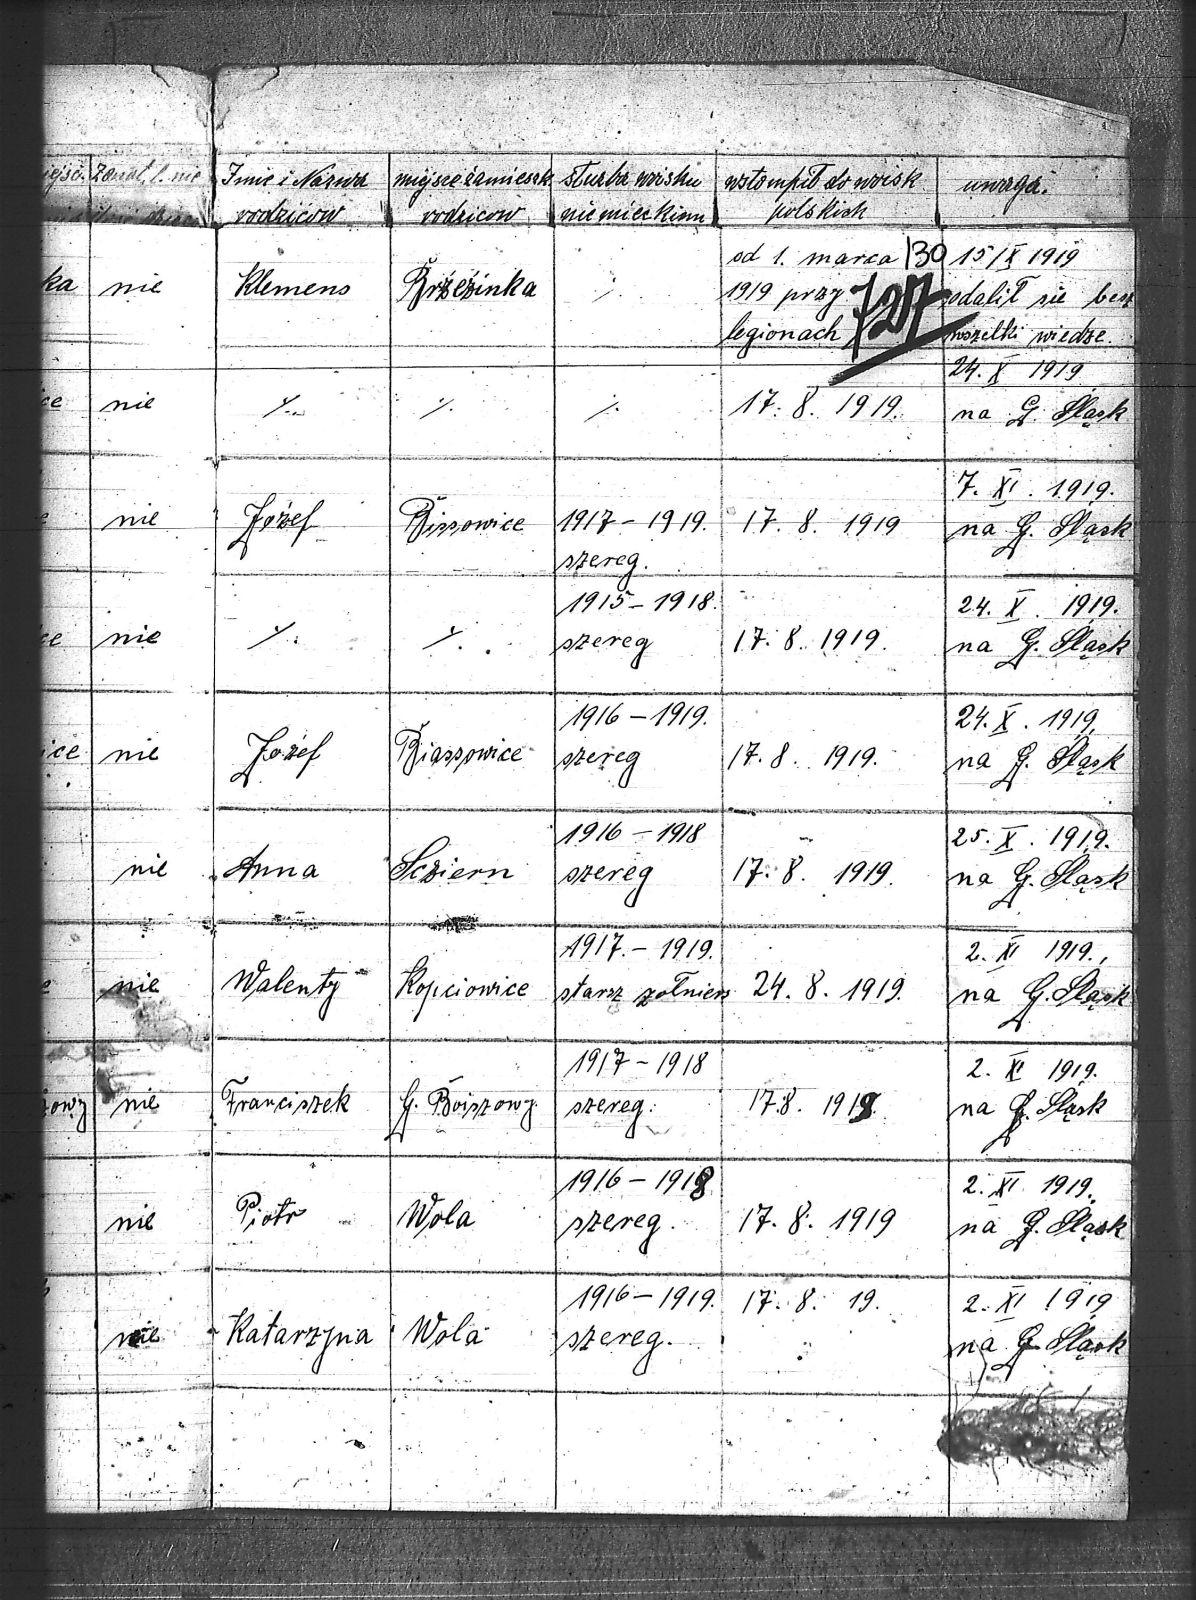 żonat. l. nie Imie i Nazwa miejsce zamieszk. służba woisku wstompił do woisk uwaga.
rodziców rodzicow niemieckiem polskich
od 1. marca 130 15/X 1919
ka nie Klemens Brzezinka 1919 przy 727 odalił sie besz
legionach wszelki wiedze.
24. X 1919
ce nie ⁒ ⁒ ⁒ 17. 8. 1919. na G. Śląsk
7. XI. 1919.
nie Józef Bissowice 1917 – 1919. 17. 8. 1919 na G. Śląsk
szereg.
1915 – 1918. 24. X. 1919.
ce nie ⁒ ⁒ szereg 17. 8. 1919. na G. Śląsk
1916 – 1919. 24. X. 1919.
ice nie Józef Biassowice szereg 17. 8. 1919. na G. Śląsk
1916 – 1918 25. X. 1919.
nie Anna Scziern szereg 17. 8. 1919. na G. Śląsk
1917. – 1919. 2. XI 1919.
nie Walenty Kopciowice starsz żołniers 24. 8. 1919. na G. Śląsk
1917 – 1918 2. XI 1919.
zowy nie Franciszek G. Boiszowy szereg. 17.8. 1919. na G. Śląsk
1916 – 1918 2. XI 1919.
nie Piotr Wola szereg. 17. 8. 1919 na G. Śląsk
1916 – 1919. 17. 8. 19. 2. XI 1919
nie Katarzyna Wola szereg. na G. Śląsk